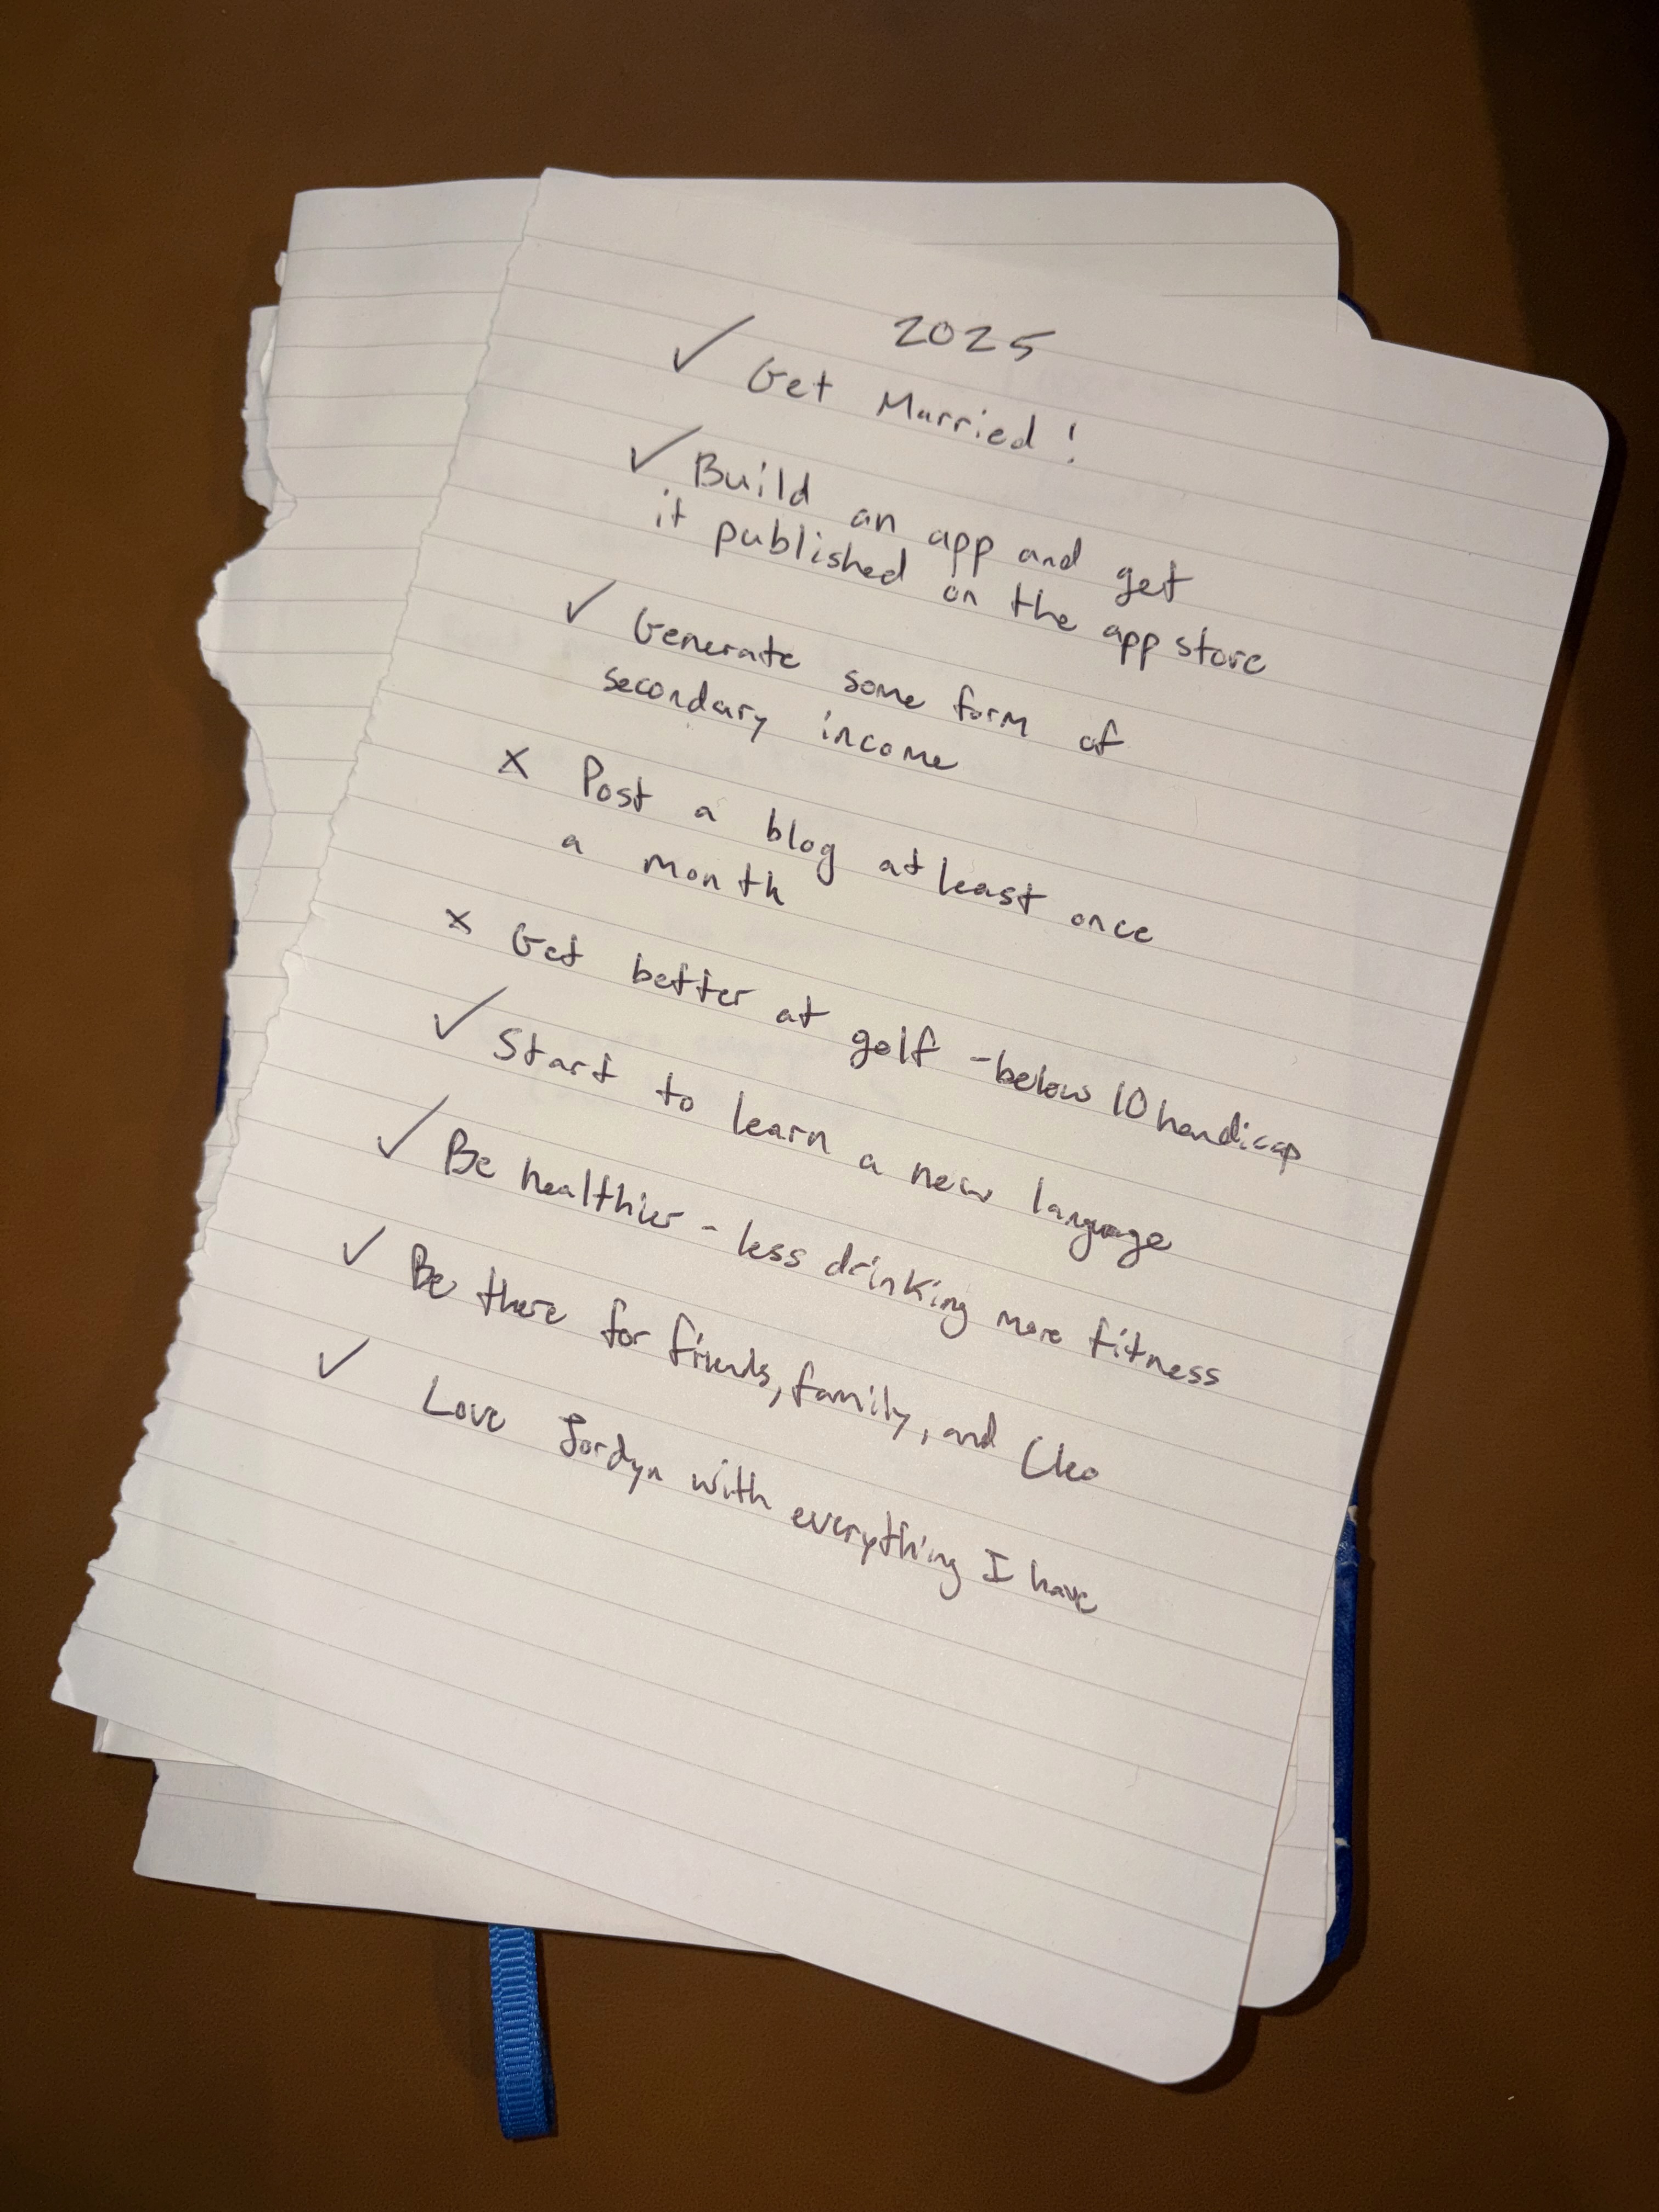 2025
✓ Get Married!
✓ Build an app and get
it published on the app store
✓ Generate some form of
secondary income
x Post a blog at least once
a month
x Get better at golf - below 10 handicap
✓ Start to learn a new language
✓ Be healthier - less drinking more fitness
✓ Be there for friends, family, and Cleo
✓ Love Jordyn with everything I have